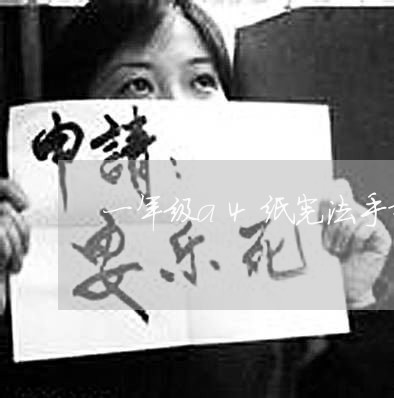 申請：
一年级a4纸宪法手
要乐死